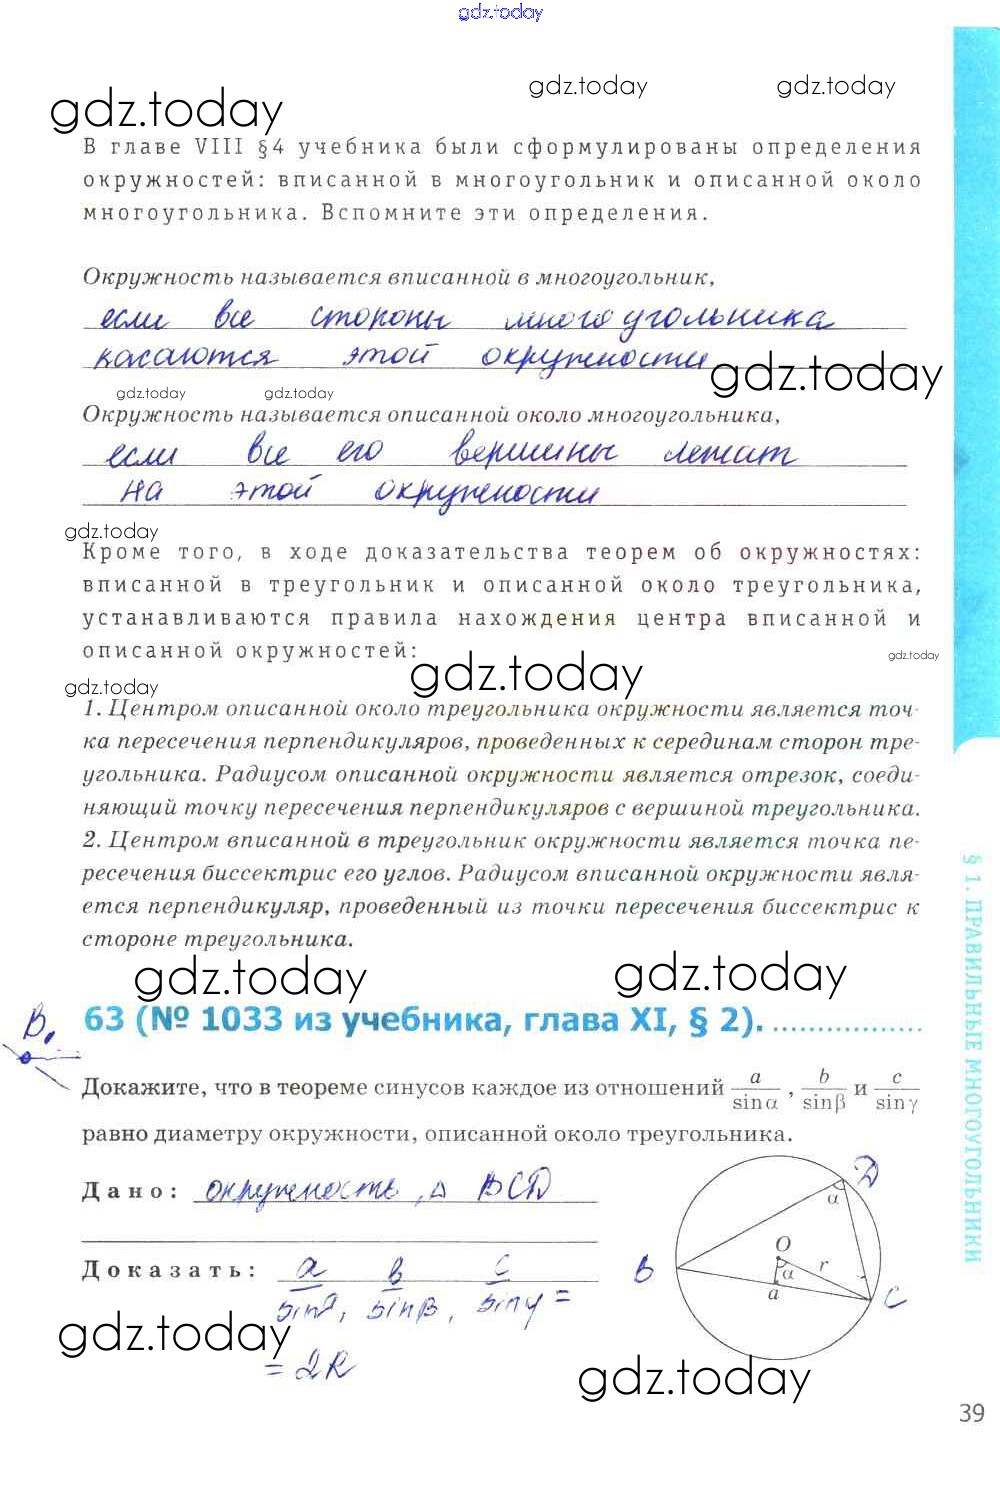 gdz.today
gdz.today gdz.today
gdz.today
В главе VIII §4 учебника были сформулированы определения
окружностей: вписанной в многоугольник и описанной около
многоугольника. Вспомните эти определения.
Окружность называется вписанной в многоугольник,
если все стороны многоугольника
касаются этой окружности
gdz.today
gdz.today gdz.today
Окружность называется описанной около многоугольника,
если все его вершины лежат
на этой окружности
gdz.today
Кроме того, в ходе доказательства теорем об окружностях:
вписанной в треугольник и описанной около треугольника,
устанавливаются правила нахождения центра вписанной и
описанной окружностей:
gdz.today
gdz.today
gdz.today
1. Центром описанной около треугольника окружности является точ-
ка пересечения перпендикуляров, проведенных к серединам сторон тре-
угольника. Радиусом описанной окружности является отрезок, соеди-
няющий точку пересечения перпендикуляров с вершиной треугольника.
2. Центром вписанной в треугольник окружности является точка пе-
ресечения биссектрис его углов. Радиусом вписанной окружности явля-
ется перпендикуляр, проведенный из точки пересечения биссектрис к
стороне треугольника.
gdz.today gdz.today
В
63 (№ 1033 из учебника, глава XI, § 2). ..................
Докажите, что в теореме синусов каждое из отношений a/sinα , b/sinβ и c/sinγ
равно диаметру окружности, описанной около треугольника.
Дано: окружность, Δ BCD
Доказать: a/sinα, b/sinβ, c/sinγ =
= 2R
D
α
O
r
α
a
B
C
gdz.today
gdz.today
§ 1. ПРАВИЛЬНЫЕ МНОГОУГОЛЬНИКИ
39